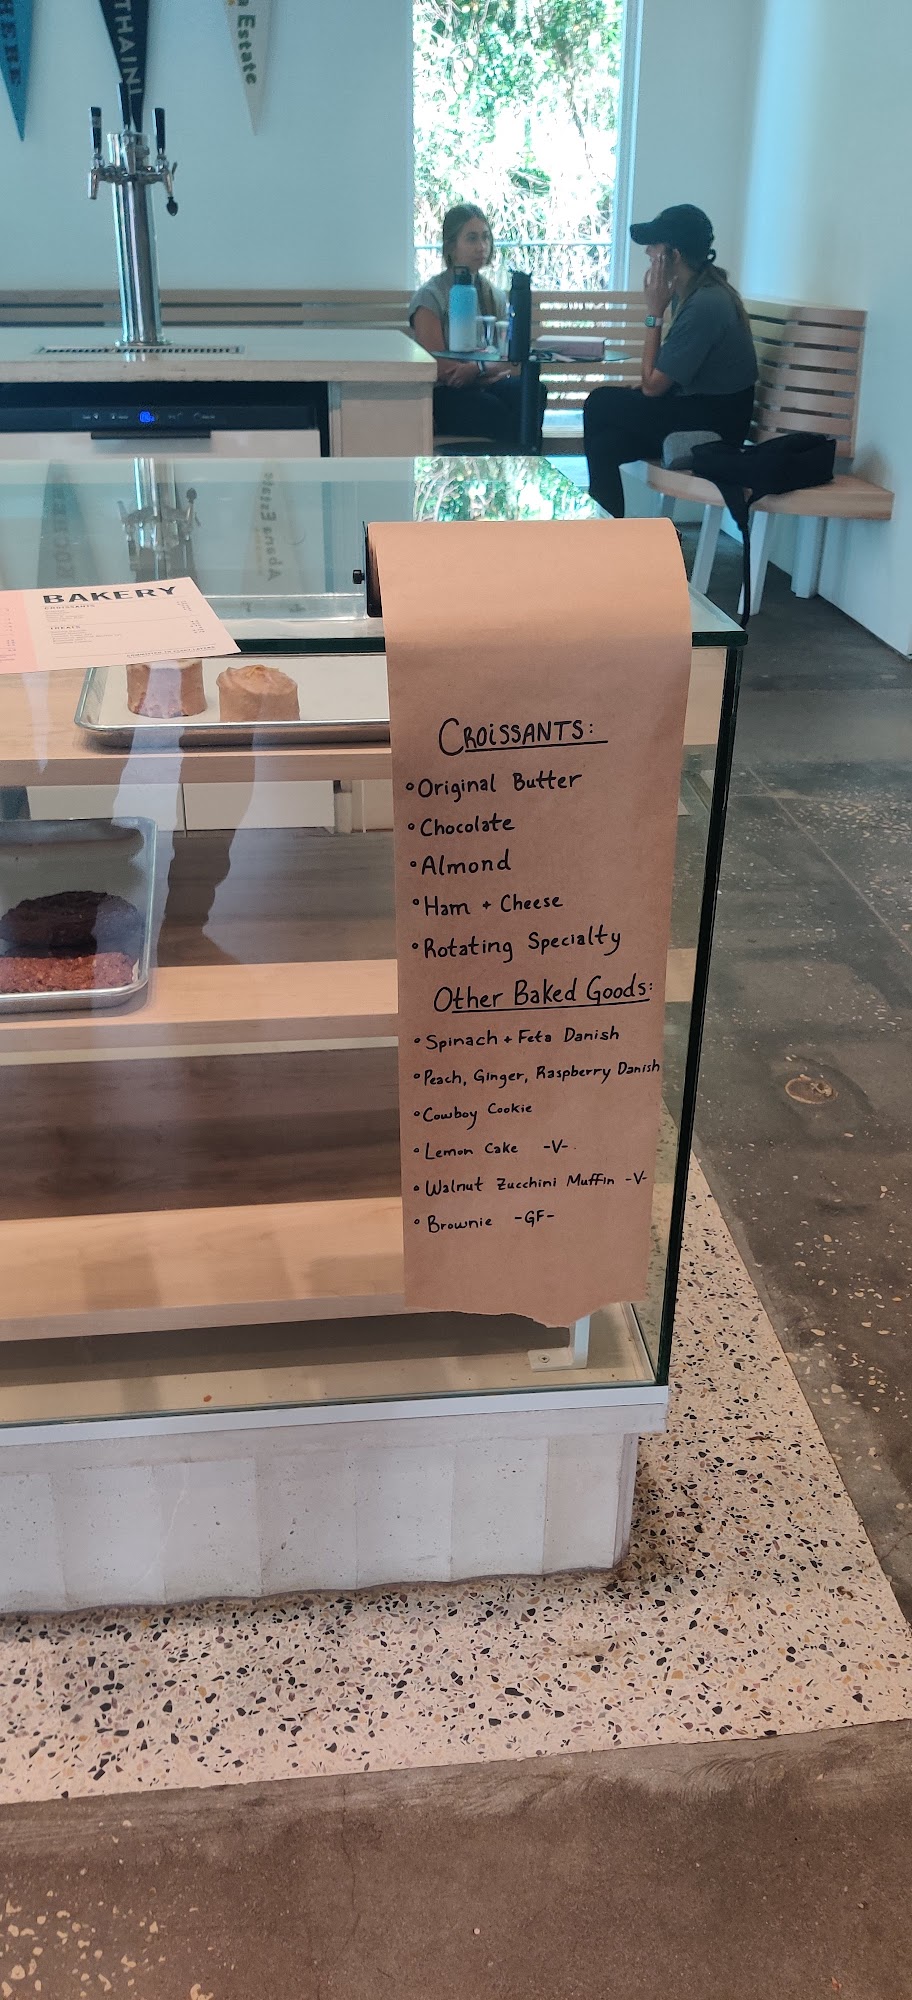 THAINI
a Estate
BAKERY
CROISSANTS
TREATS
CROISSANTS:
°Original Butter
°Chocolate
°Almond
°Ham + Cheese
°Rotating Specialty
Other Baked Goods:
°Spinach + Feta Danish
°Peach, Ginger, Raspberry Danish
°Cowboy Cookie
°Lemon Cake -V-
°Walnut Zucchini Muffin -V-
°Brownie -GF-